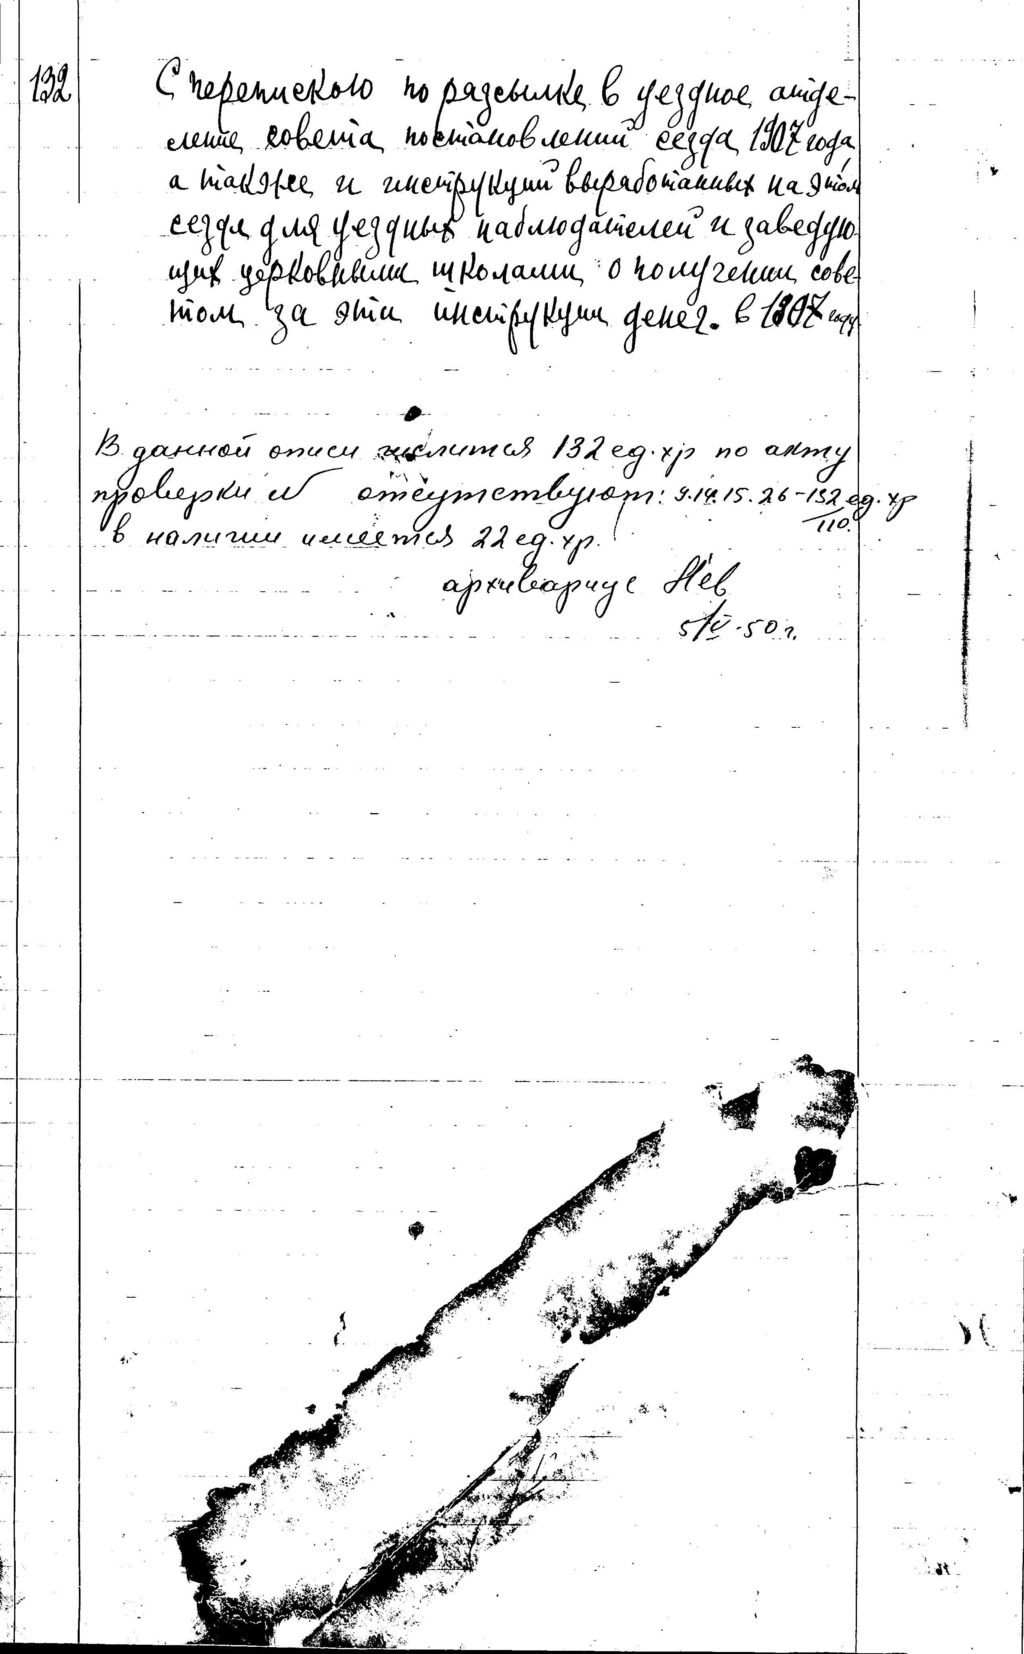 132 С перепискою по разсылке в уездное отде-
ление совета постановлений сезда 1907 года,
а также и инструкций выработанных на этом
сезде для уездных наблюдателей и заведую
щих церковными школами о получении сове
том за эти инструкции денег. в 1907 году
В данной описи числится 132 ед. хр по акту
проверки № отсутствуют: 9.14.15.26-132 ед. хр
110.
в наличии имеется 22 ед. хр.
архивариус
5/V-50 г.